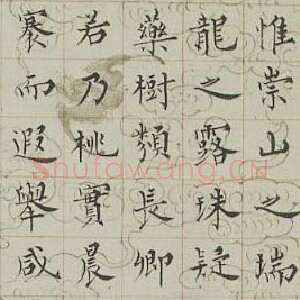 惟崇山之瑞
龍之露珠疑
藥樹類長卿
若乃桃實晨
褰而遐舉咸
shufawang.cn